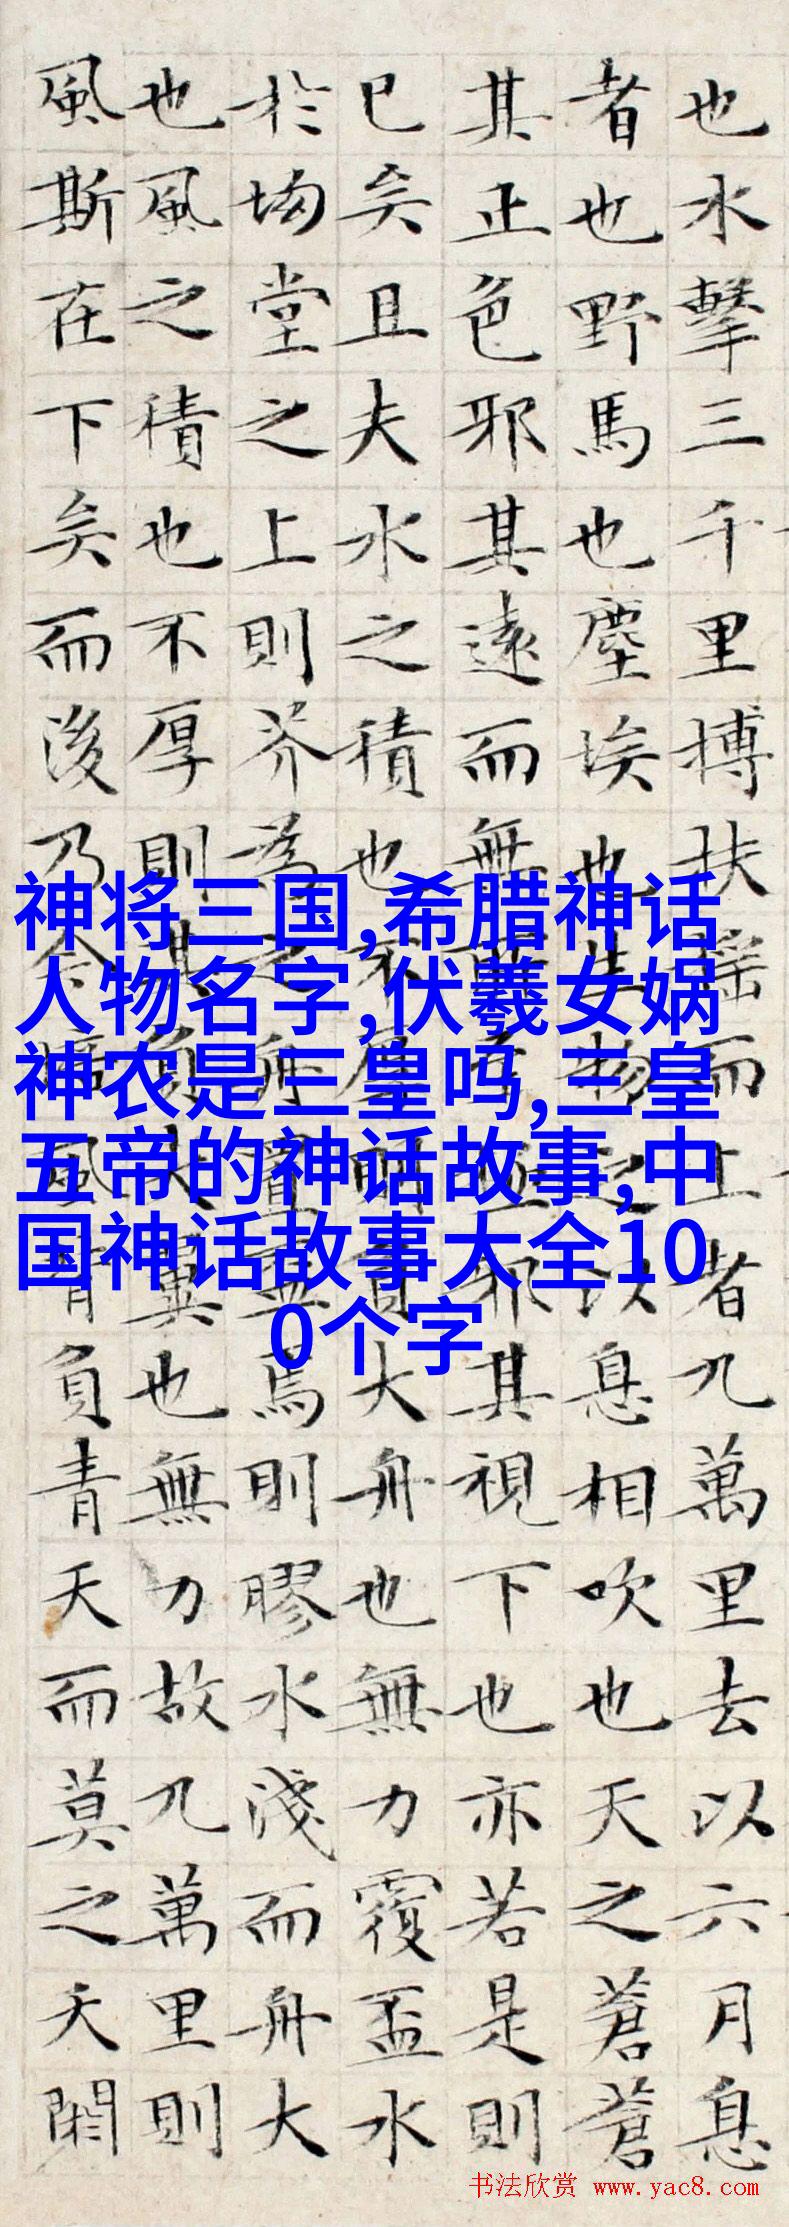 也水擊三千里搏扶搖而上者九萬里去以六月息
者也野馬也塵埃也生物之以息相吹也天之蒼蒼
其正色邪其遠而無所至極邪其視下也亦若是則
已矣且夫水之積也不厚則負大舟也無力覆盃水
於坳堂之上則芥為之舟置盃焉則膠水淺而舟大
也風之積也不厚則其負大翼也無力故九萬里則
風斯在下矣而後乃今培風背負青天而莫之夭閼
神将三国,希腊神话
人物名字,伏羲女娲
神农是三皇吗,三皇
五帝的神话故事,中
国神话故事大全10
0个字
书法欣赏 www.yac8.com